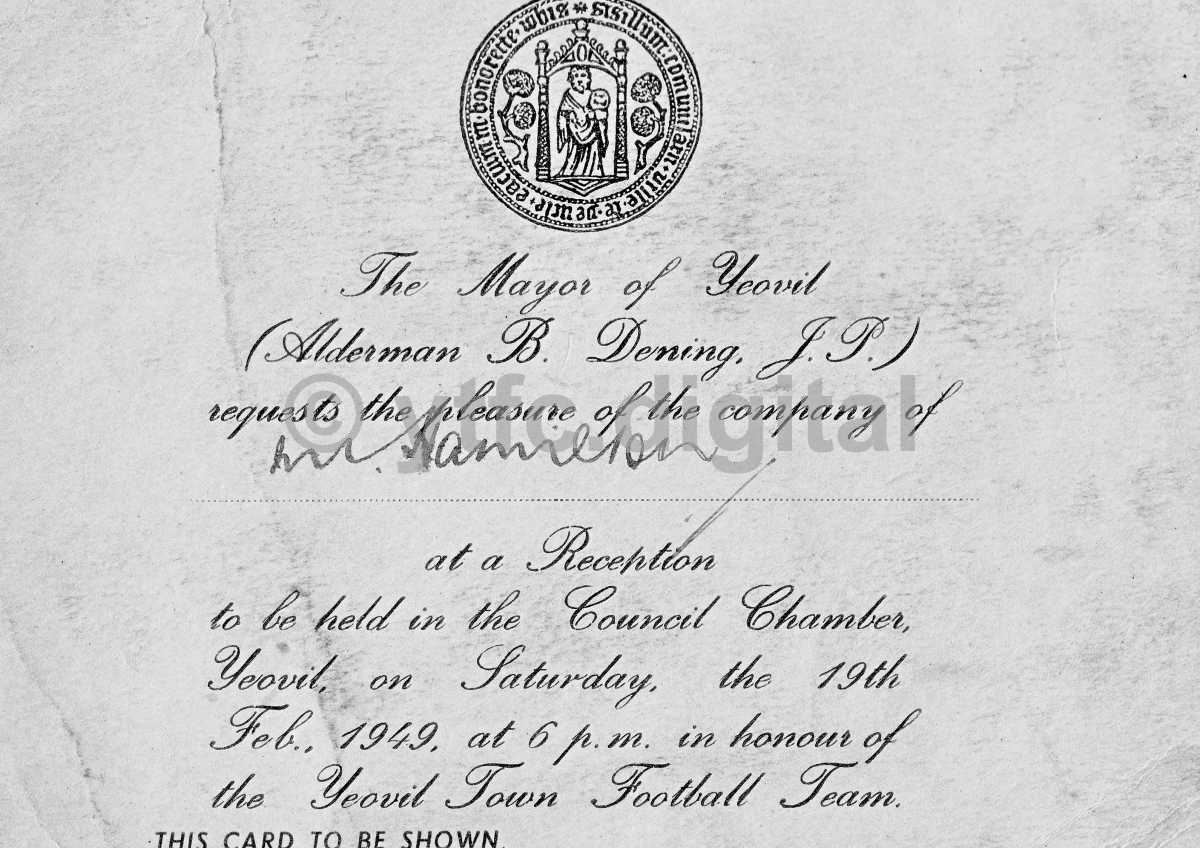 The Mayor of Yeovil
(Alderman B. Dening, J.P.)
requests the pleasure of the company of
© ytfc.digital
Mr. Hamilton
at a Reception
to be held in the Council Chamber,
Yeovil, on Saturday, the 19th
Feb., 1949, at 6 p.m. in honour of
the Yeovil Town Football Team.
THIS CARD TO BE SHOWN.